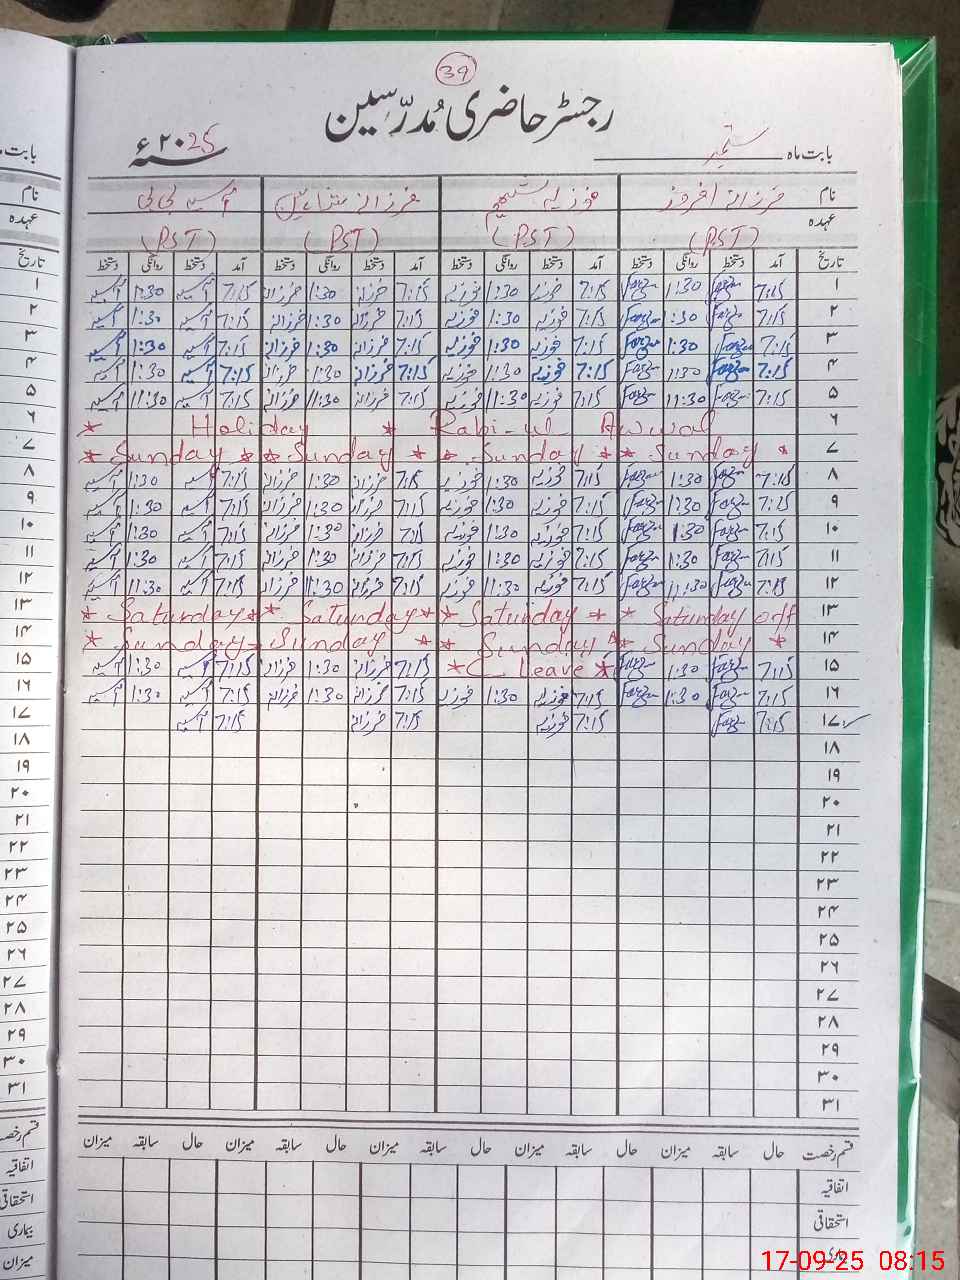 39
رجسٹر حاضری مُدرّسین
بابت ماہ ستمبر ۲۰25ء سنہ
نام فرزانہ افروز فوزیہ شمیم فرزانہ آسیہ بی بی
عہدہ (PST) (PST) (PST) (PST)
تاریخ آمد دستخط روانگی دستخط آمد دستخط روانگی دستخط آمد دستخط روانگی دستخط آمد دستخط روانگی دستخط
۱ 7:15 Farzu 1:30 Farzu 7:15 فوزیہ 1:30 فوزیہ 7:15 فرزانہ 1:30 فرزانہ 7:15 آسیہ 1:30 آسیہ
۲ 7:15 Farzu 1:30 Farzu 7:15 فوزیہ 1:30 فوزیہ 7:15 فرزانہ 1:30 فرزانہ 7:15 آسیہ 1:30 آسیہ
۳ 7:15 Farzu 1:30 Farzu 7:15 فوزیہ 1:30 فوزیہ 7:15 فرزانہ 1:30 فرزانہ 7:15 آسیہ 1:30 آسیہ
۴ 7:15 Farzu 1:30 Farzu 7:15 فوزیہ 1:30 فوزیہ 7:15 فرزانہ 1:30 فرزانہ 7:15 آسیہ 1:30 آسیہ
۵ 7:15 Farzu 11:30 Farzu 7:15 فوزیہ 11:30 فوزیہ 7:15 فرزانہ 11:30 فرزانہ 7:15 آسیہ 11:30 آسیہ
۶ * Holiday * Rabi-ul Awwal
۷ * Sunday * * Sunday * * Sunday * * Sunday *
۸ 7:15 Farzu 1:30 Farzu 7:15 فوزیہ 1:30 فوزیہ 7:15 فرزانہ 1:30 فرزانہ 7:15 آسیہ 1:30 آسیہ
۹ 7:15 Farzu 1:30 Farzu 7:15 فوزیہ 1:30 فوزیہ 7:15 فرزانہ 1:30 فرزانہ 7:15 آسیہ 1:30 آسیہ
۱۰ 7:15 Farzu 1:30 Farzu 7:15 فوزیہ 1:30 فوزیہ 7:15 فرزانہ 1:30 فرزانہ 7:15 آسیہ 1:30 آسیہ
۱۱ 7:15 Farzu 1:30 Farzu 7:15 فوزیہ 1:30 فوزیہ 7:15 فرزانہ 1:30 فرزانہ 7:15 آسیہ 1:30 آسیہ
۱۲ 7:15 Farzu 11:30 Farzu 7:15 فوزیہ 11:30 فوزیہ 7:15 فرزانہ 11:30 فرزانہ 7:15 آسیہ 11:30 آسیہ
۱۳ * Saturday * * Saturday * * Saturday * * Saturday off
۱۴ * Sunday * Sunday * * Sunday * * Sunday *
۱۵ 7:15 Farzu 1:30 Farzu * C Leave * 7:15 فرزانہ 1:30 فرزانہ 7:15 آسیہ 1:30 آسیہ
۱۶ 7:15 Farzu 1:30 Farzu 7:15 فوزیہ 1:30 فوزیہ 7:15 فرزانہ 1:30 فرزانہ 7:15 آسیہ 1:30 آسیہ
۱۷ 7:15 Farzu 7:15 فوزیہ 7:15 فرزانہ 7:15 آسیہ
۱۸
۱۹
۲۰
۲۱
۲۲
۲۳
۲۴
۲۵
۲۶
۲۷
۲۸
۲۹
۳۰
۳۱
قسم رخصت حال سابقہ میزان حال سابقہ میزان حال سابقہ میزان حال سابقہ میزان حال سابقہ میزان
اتفاقیہ
استحقاقی
بیماری
17-09-25 08:15
بابت ماہ
نام
عہدہ
تاریخ
۱
۲
۳
۴
۵
۶
۷
۸
۹
۱۰
۱۱
۱۲
۱۳
۱۴
۱۵
۱۶
۱۷
۱۸
۱۹
۲۰
۲۱
۲۲
۲۳
۲۴
۲۵
۲۶
۲۷
۲۸
۲۹
۳۰
۳۱
قسم رخصت
اتفاقیہ
استحقاقی
بیماری
میزان